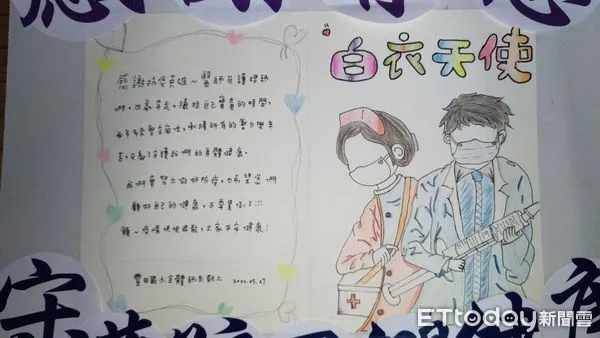 白衣天使
感謝抗疫英雄～醫師及護理師
們，四處奔走，犧牲自己寶貴的時間，
兩年多來堅守崗位，承擔所有的壓力與辛
苦，只為了守護我們的身體健康。
我們會努力做好防疫，也希望您們
顧好自己的健康，不要累倒了!!!
願～疫情快快 大家平安健康!
豐田國小全體師生敬上 2022.05.07
宋
ETtoday新聞雲